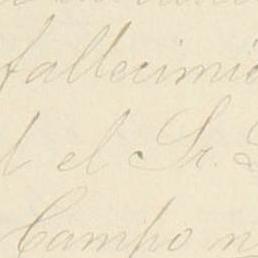 fallecimi
el Sr.
Campo